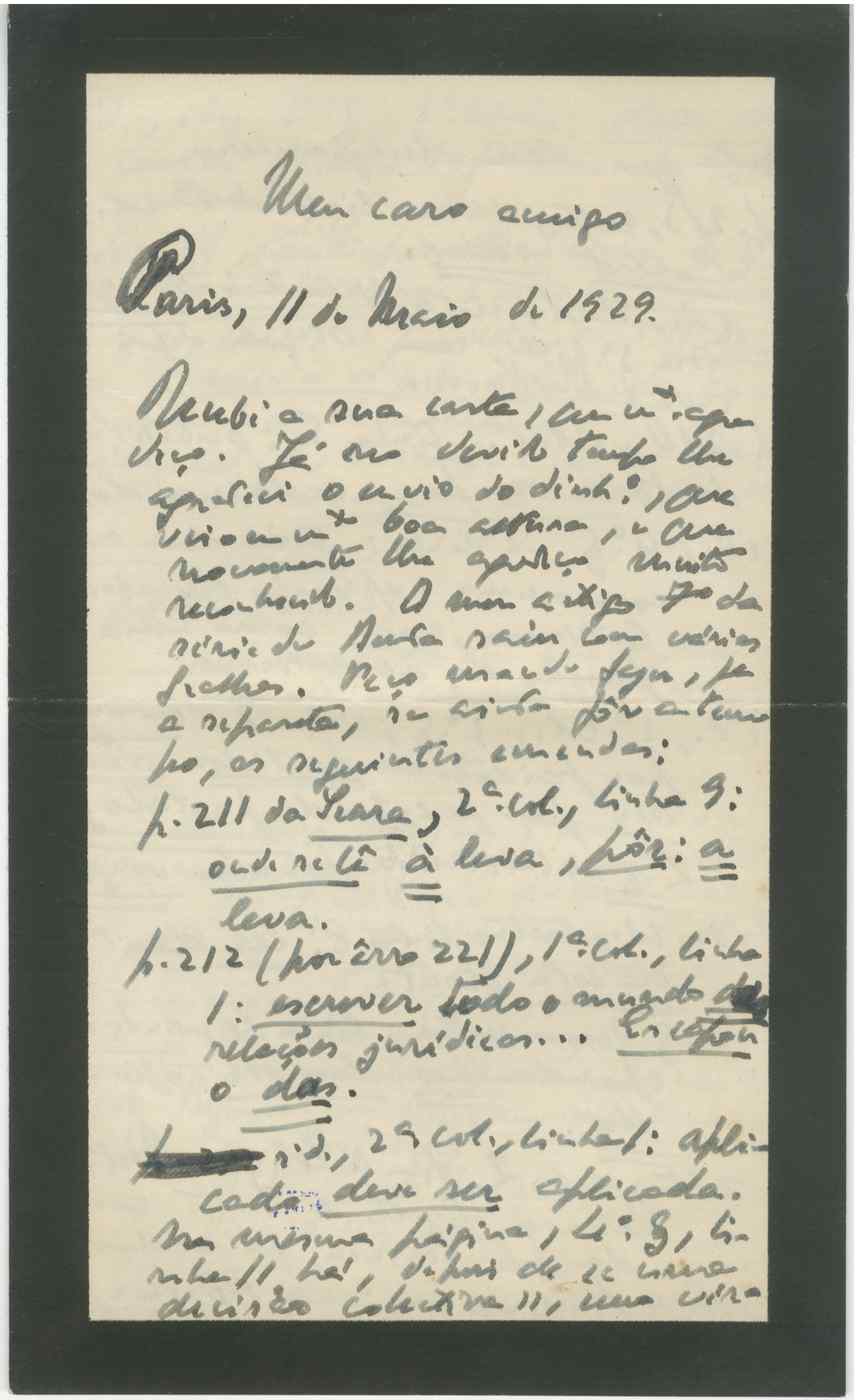 Meu caro amigo
Paris, 11 de Maio de 1929.
Recebi a sua carta, que m.to agra
deço. Já no devido tempo lhe
agradeci o envio do dinh.o, que
veio em m.to boa altura, e que
novamente lhe agradeço muito
reconhecido. O meu artigo 7o da
série do Anda saiu com várias
gralhas. Peço mande fazer, pa
a separata, se ainda fôr a tem
po, as seguintes emendas:
p. 211 da Seara, 2ª col., linha 9:
onde se lê à leva, pôr: a
leva.
p. 212 (por êrro 221), 1ª col., linha
1: escrever todo o mundo das
relações jurídicas... Escapou
o das.
id., 2ª col., linha 1: apli-
cada deve ser aplicada.
Na mesma página, 4º §, li-
nha 11 há, depois de «uma
decisão colectiva», uma vírg